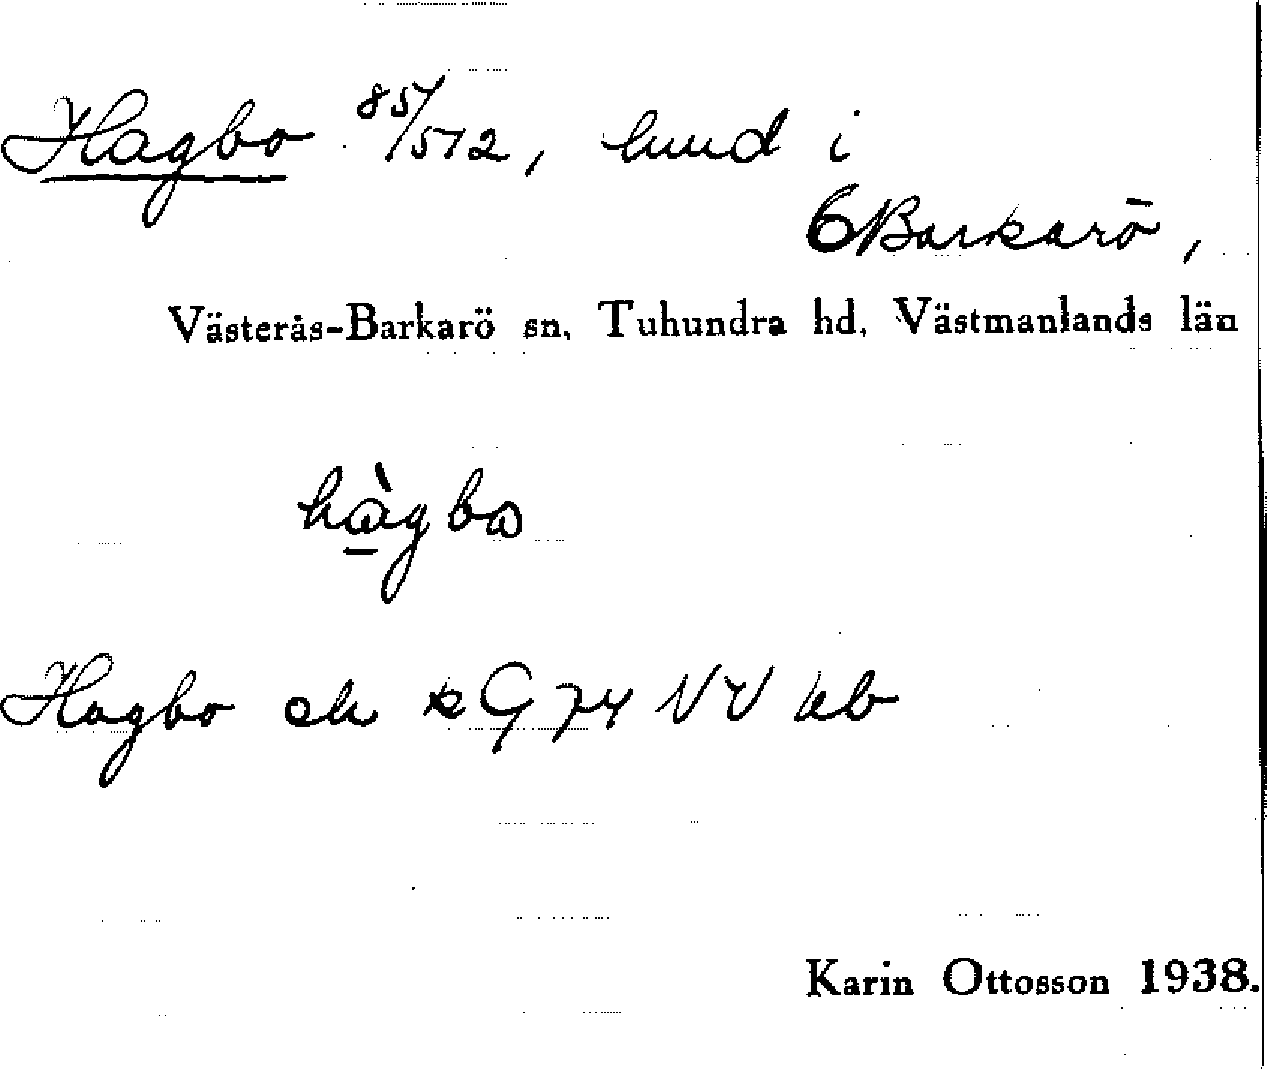 Hagbo 85/512, hund i
Barkarö,
Västerås-Barkarö sn, Tuhundra hd, Västmanlands län
hàgbω
Hagbo ek
Karin Ottosson 1938.